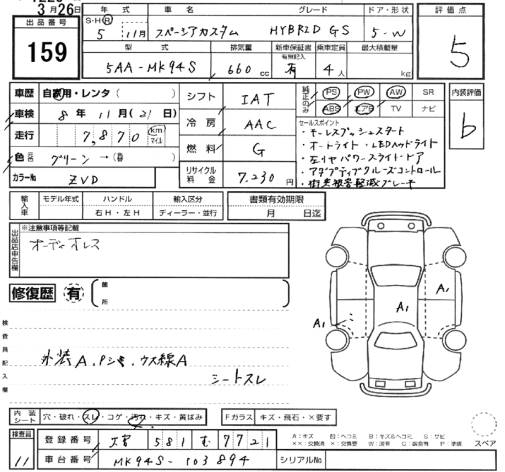 3月26日
出品番号 159
年式 車名 グレード ドア・形状 評価点
S・H・R 5 11月 スペーシアカスタム HYBRID GS 5-W 5
型式 排気量 新車保証書 乗車定員 最大積載量
有無記入
5AA-MK94S 660cc 有 4人 kg
車歴 自家用・レンタ( ) シフト IAT 純正のみ PS PW AW SR 内装評価
ABS エアB TV ナビ b
車検 8年11月(21日) 冷房 AAC セールスポイント
・キーレスプッシュスタート
走行 7,870 km マイル ・オートライト・LEDヘッドライト
燃料 G ・左リヤパワースライドドア
色 グリーン → ・アダプティブクルーズコントロール
カラーNo ZVD リサイクル料金 7,230円 ・衝突被害軽減ブレーキ
輸入車 モデル年式 ハンドル 輸入区分 書類有効期限
年 右H・左H ディーラー・並行 月 日迄
出品店申告欄 ※注意事項等記載
オーディオレス
修復歴 有 箇所
A1 A1 A1
検査員記入欄
外装A、Pシキ、ウス線A
シートスレ
内装シート 穴・破れ・スレ・コゲ・汚れ・キズ・黄ばみ Fガラス キズ・飛石・×要す
スペア
検査員 11
登録番号 581 む 7721
車台番号 MK94S-103894 シリアルNo